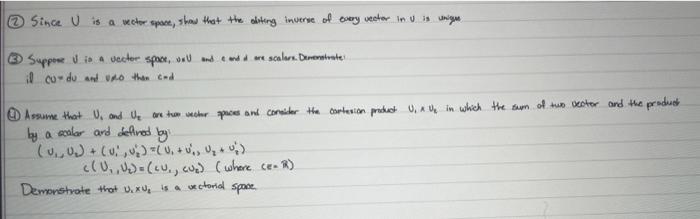 ② Since U is a vector space, show that the addting inverse of every vector in U is unique
③ Suppose U is a vector space, u∈U and c and d are scalars. Demonstrate:
if cu=du and u≠0 then c=d
④ Assume that U₁ and U₂ are two vector spaces and consider the cartesian product U₁ x U₂ in which the sum of two vector and the product
by a scalar and defined by:
(U₁, U₂) + (U₁', U₂') = (U₁ + U₁', U₂ + U₂')
c(U₁, U₂) = (cU₁, cU₂) (where c∈ℝ)
Demonstrate that U₁xU₂ is a vectorial space.